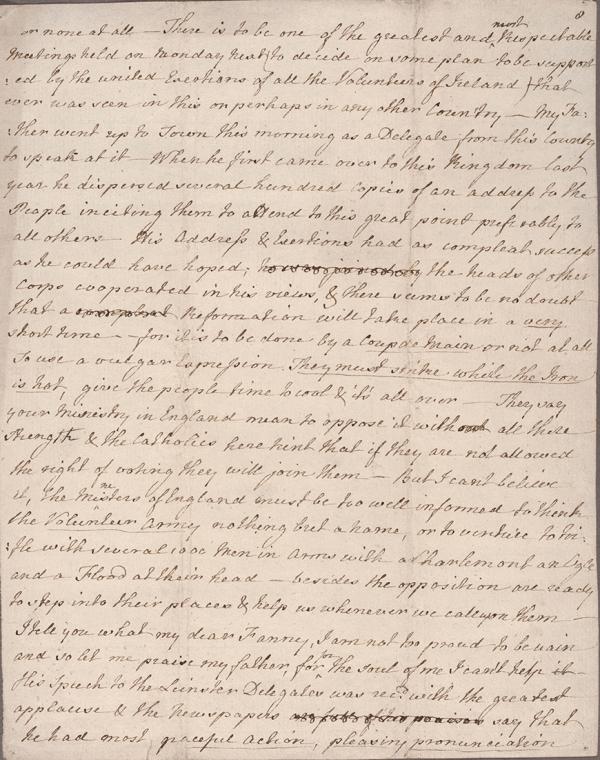 8
or none at all - There is to be one of the greatest and most Respectable
Meetings held on Monday next (to decide on some plan to be support
:ed by the united Exertions of all the Volunteers of Ireland) that
ever was seen in this or perhaps in any other Country - My Fa:
:ther went up to Town this morning as a Delegate from this County
to speak at it - When he first came over to this Kingdom last
year he dispersed several hundred copies of an address to the
People inciting them to attend to this great point preferably to
all others - His Address & Exertions had as compleat success
as he could have hoped; the heads of other
Corps cooperated in his views, & there seems to be no doubt
that a Reformation will take place in a very
short time - - for it is to be done by a Coup de Main or not at all
To use a vulgar Expression, They must strike while the Iron
is hot, give the people time to cool & it's all over - They say
your Ministry in England mean to oppose it with all their
strength & the Catholics here hint that if they are not allowed
the right of voting they will join them - But I cant believe
it, the Ministers of England must be too well informed to think
the Volunteer Army nothing but a name, or to venture to tri:
:fle with several 1000 Men in Arms with a Charlemont an Ogle
and a Flood at their head - besides the opposition are ready
to step into their places & help us whenever we call upon them -
I tell you what my dear Fanny, I am not too proud to be vain
and so let me praise my father, for for the soul of me I cant help it -
His speech to the Leinster Delegates was recd with the greatest
applause & the Newspapers say that
he had most graceful action, pleasing pronunciation